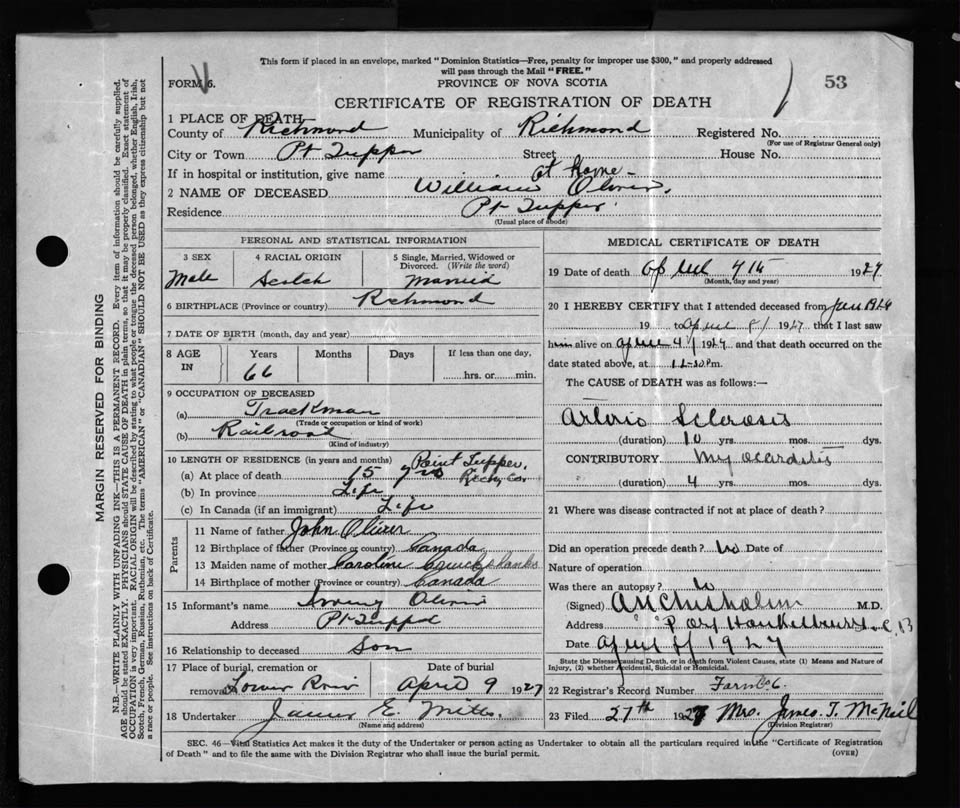 This form if placed in an envelope, marked "Dominion Statistics—Free, penalty for improper use $300," and properly addressed
will pass through the Mail "FREE."
FORM 6.
PROVINCE OF NOVA SCOTIA
53
CERTIFICATE OF REGISTRATION OF DEATH
1 PLACE OF DEATH
County of Richmond Municipality of Richmond Registered No.
(For use of Registrar General only)
City or Town Pt Tupper Street House No.
If in hospital or institution, give name at Home-
2 NAME OF DECEASED William Oliver.
Residence Pt Tupper.
(Usual place of abode)
PERSONAL AND STATISTICAL INFORMATION
3 SEX 4 RACIAL ORIGIN 5 Single, Married, Widowed or Divorced. (Write the word)
Male Scotch Married
6 BIRTHPLACE (Province or country) Richmond
7 DATE OF BIRTH (month, day and year)
8 AGE IN Years Months Days If less than one day, hrs. or min.
66
9 OCCUPATION OF DECEASED
(a) Trackman
(Trade or occupation or kind of work)
(b) Railroad
(Kind of industry)
10 LENGTH OF RESIDENCE (in years and months)
(a) At place of death 15 yrs Point Tupper, Rich, Co.
(b) In province Life
(c) In Canada (if an immigrant) Life
Parents
11 Name of father John Oliver
12 Birthplace of father (Province or country) Canada
13 Maiden name of mother Caroline Cruickshanks
14 Birthplace of mother (Province or country) Canada
15 Informant's name Oliver
Address Pt Tupper
16 Relationship to deceased Son
17 Place of burial, cremation or removal Lower River Date of burial April 9 1927
18 Undertaker James E.
(Name and address)
MEDICAL CERTIFICATE OF DEATH
19 Date of death April 1927
(Month, day and year)
20 I HEREBY CERTIFY that I attended deceased from Jan 1926
19 to April 1927 that I last saw
him alive on April 4/ 1927 and that death occurred on the
date stated above, at m.
The CAUSE of DEATH was as follows:—
Arterio Sclerosis
(duration) 10 yrs. mos. dys.
CONTRIBUTORY Myocarditis
(duration) 4 yrs. mos. dys.
21 Where was disease contracted if not at place of death?
Did an operation precede death? No Date of
Nature of operation
Was there an autopsy? No
(Signed) Chisholm M.D.
Address Port Hawkesbury C.B
Date April 1927
State the Disease causing Death, or in death from Violent Causes, state (1) Means and Nature of
Injury, (2) whether Accidental, Suicidal or Homicidal.
22 Registrar's Record Number Form 6.
23 Filed 27th 1927 Mrs. James T. McNeil
(Division Registrar)
SEC. 46—Vital Statistics Act makes it the duty of the Undertaker or person acting as Undertaker to obtain all the particulars required in the "Certificate of Registration
of Death" and to file the same with the Division Registrar who shall issue the burial permit.
(OVER)
MARGIN RESERVED FOR BINDING
N.B.—WRITE PLAINLY WITH UNFADING INK—THIS IS A PERMANENT RECORD. Every item of information should be carefully supplied.
AGE should be stated EXACTLY. PHYSICIANS should STATE CAUSE OF DEATH in plain terms, so that it may be properly classified. Exact statement of
OCCUPATION is very important. RACIAL ORIGIN will be described by stating to what people or tongue the deceased person belonged, whether English, Irish,
Scotch, French, German, Russian, Ruthenian, etc. The terms "AMERICAN" or "CANADIAN" SHOULD NOT BE USED as they express citizenship but not
a race or people. See instructions on back of Certificate.